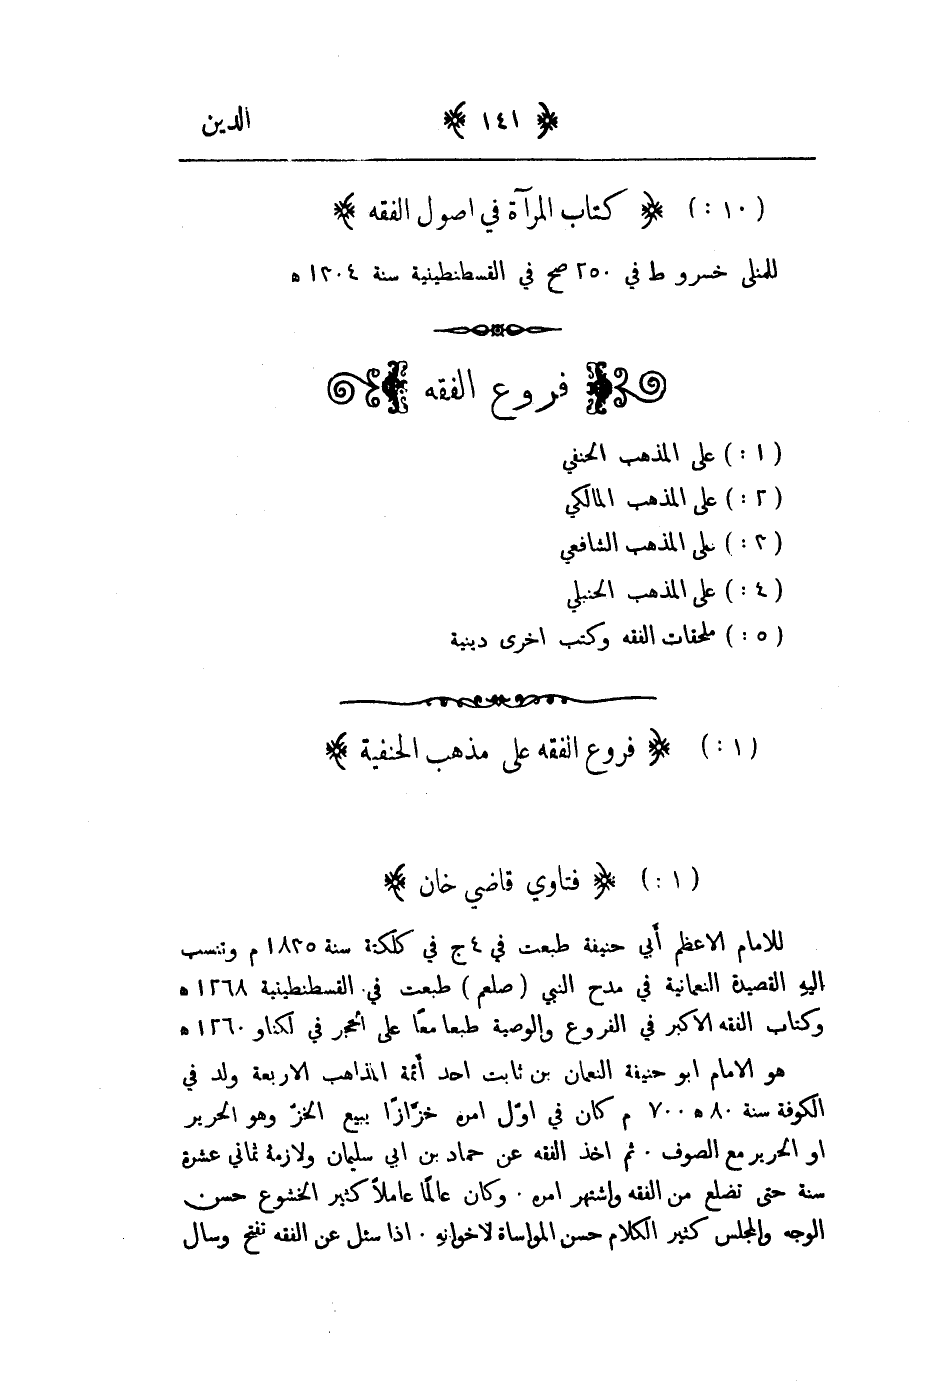 ﴿ ١٤١ ﴾ الدين
(١٠ :) ﴿ كتاب المرآة في اصول الفقه ﴾
للمنلى خسرو ط في ٢٥٠ صح في القسطنطينية سنة ١٣٠٤ ه
فروع الفقه
(١ :) على المذهب الحنفي
(٢ :) على المذهب المالكي
(٣ :) على المذهب الشافعي
(٤ :) على المذهب الحنبلي
(٥ :) ملحقات الفقه وكتب اخرى دينية
(١ :) ﴿ فروع الفقه على مذهب الحنفية ﴾
(١ :) ﴿ فتاوي قاضي خان ﴾
للامام الاعظم أبي حنيفة طبعت في ٤ ج في كلكتة سنة ١٨٣٥ م وتنسب
اليه القصيدة النعمانية في مدح النبي (صلعم) طبعت في القسطنطينية ١٢٦٨ ه
وكتاب الفقه الاكبر في الفروع والوصية طبعا معًا على الحجر في لكناو ١٢٦٠ ه
هو الامام ابو حنيفة النعمان بن ثابت احد أئمة المذاهب الاربعة ولد في
الكوفة سنة ٨٠ ه ٧٠٠ م كان في اوّل امره خزّازًا يبيع الخزّ وهو الحرير
او الحرير مع الصوف ٠ ثم اخذ الفقه عن حماد بن ابي سليمان ولازمهُ ثماني عشرة
سنة حتى تضلع من الفقه واشتهر امره ٠ وكان عالمًا عاملاً كثير الخشوع حسن
الوجه والمجلس كثير الكلام حسن المواساة لاخوانه ٠ اذا سئل عن الفقه تفتح وسال